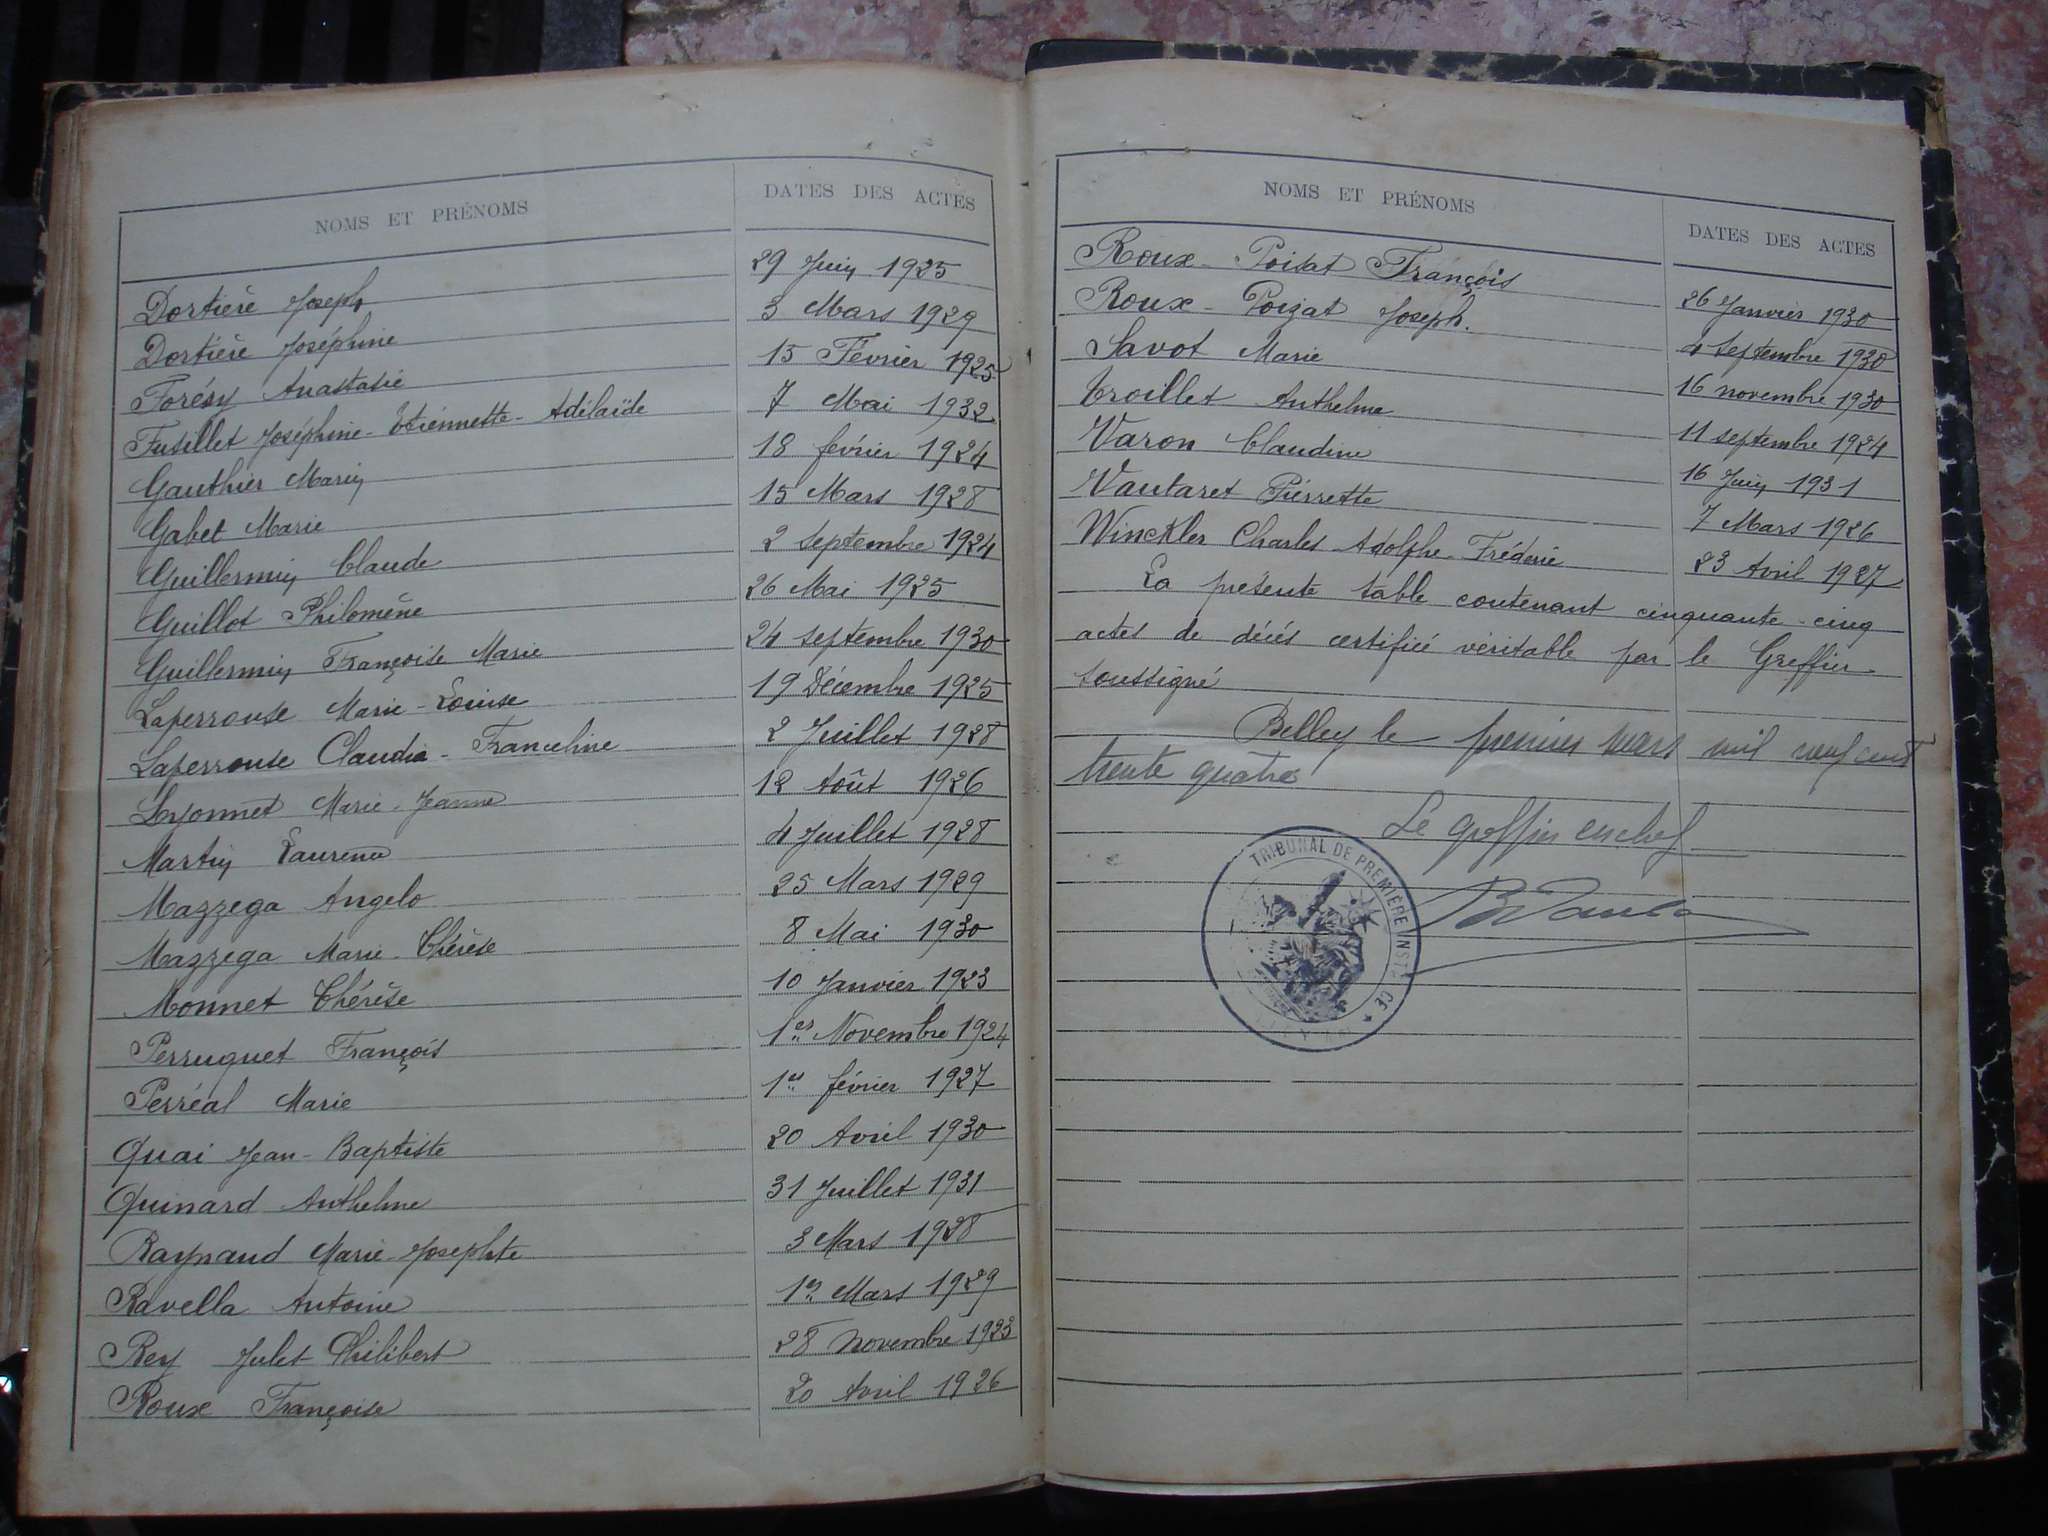 NOMS ET PRÉNOMS DATES DES ACTES
Dortière Joseph 29 Juin 1925
Dortière Joséphine 3 Mars 1929
Forésy Anastasie 15 Février 1925
Fusillet Joséphine-Etiennette-Adélaïde 7 Mai 1932
Gauthier Marin 18 février 1924
Gabet Marie 15 Mars 1928
Guillermin Claude 2 septembre 1924
Guillot Philomène 26 Mai 1925
Guillermin Françoise Marie 24 septembre 1930
Laperrouse Marie-Louise 19 Décembre 1925
Laperrouse Claudia-Franceline 2 Juillet 1928
Lyonnet Marie-Jeanne 12 Août 1926
Martin 4 Juillet 1928
Mazzega Angelo 25 Mars 1929
Mazzega Marie-Thérèse 8 Mai 1930
Monnet Thérèse 10 Janvier 1923
Perruquet François 1er Novembre 1924
Perréal Marie 1er février 1927
Quai Jean-Baptiste 20 Avril 1930
Quinard Anthelme 31 Juillet 1931
Raynaud Marie-Josephte 3 Mars 1928
Ravella Antoine 1er Mars 1929
Rey Jules Philibert 28 novembre 1923
Roux Françoise 20 Avril 1926
NOMS ET PRÉNOMS DATES DES ACTES
Roux-Poisat François 26 Janvier 1930
Roux-Poizat Joseph. 4 Septembre 1930
Savot Marie 16 novembre 1930
Troillet Anthelme 11 septembre 1924
Varon Claudine 16 Juin 1931
Vautaret Pierrette 7 Mars 1926
Winckler Charles-Adolphe-Fréderic 23 Avril 1927
La présente table contenant cinquante-cinq
actes de décés certifiée véritable par le Greffier
soussigné
Belley le premier mars mil neuf cent
trente quatre
Le greffier en chef
TRIBUNAL DE PREMIÈRE INSTANCE